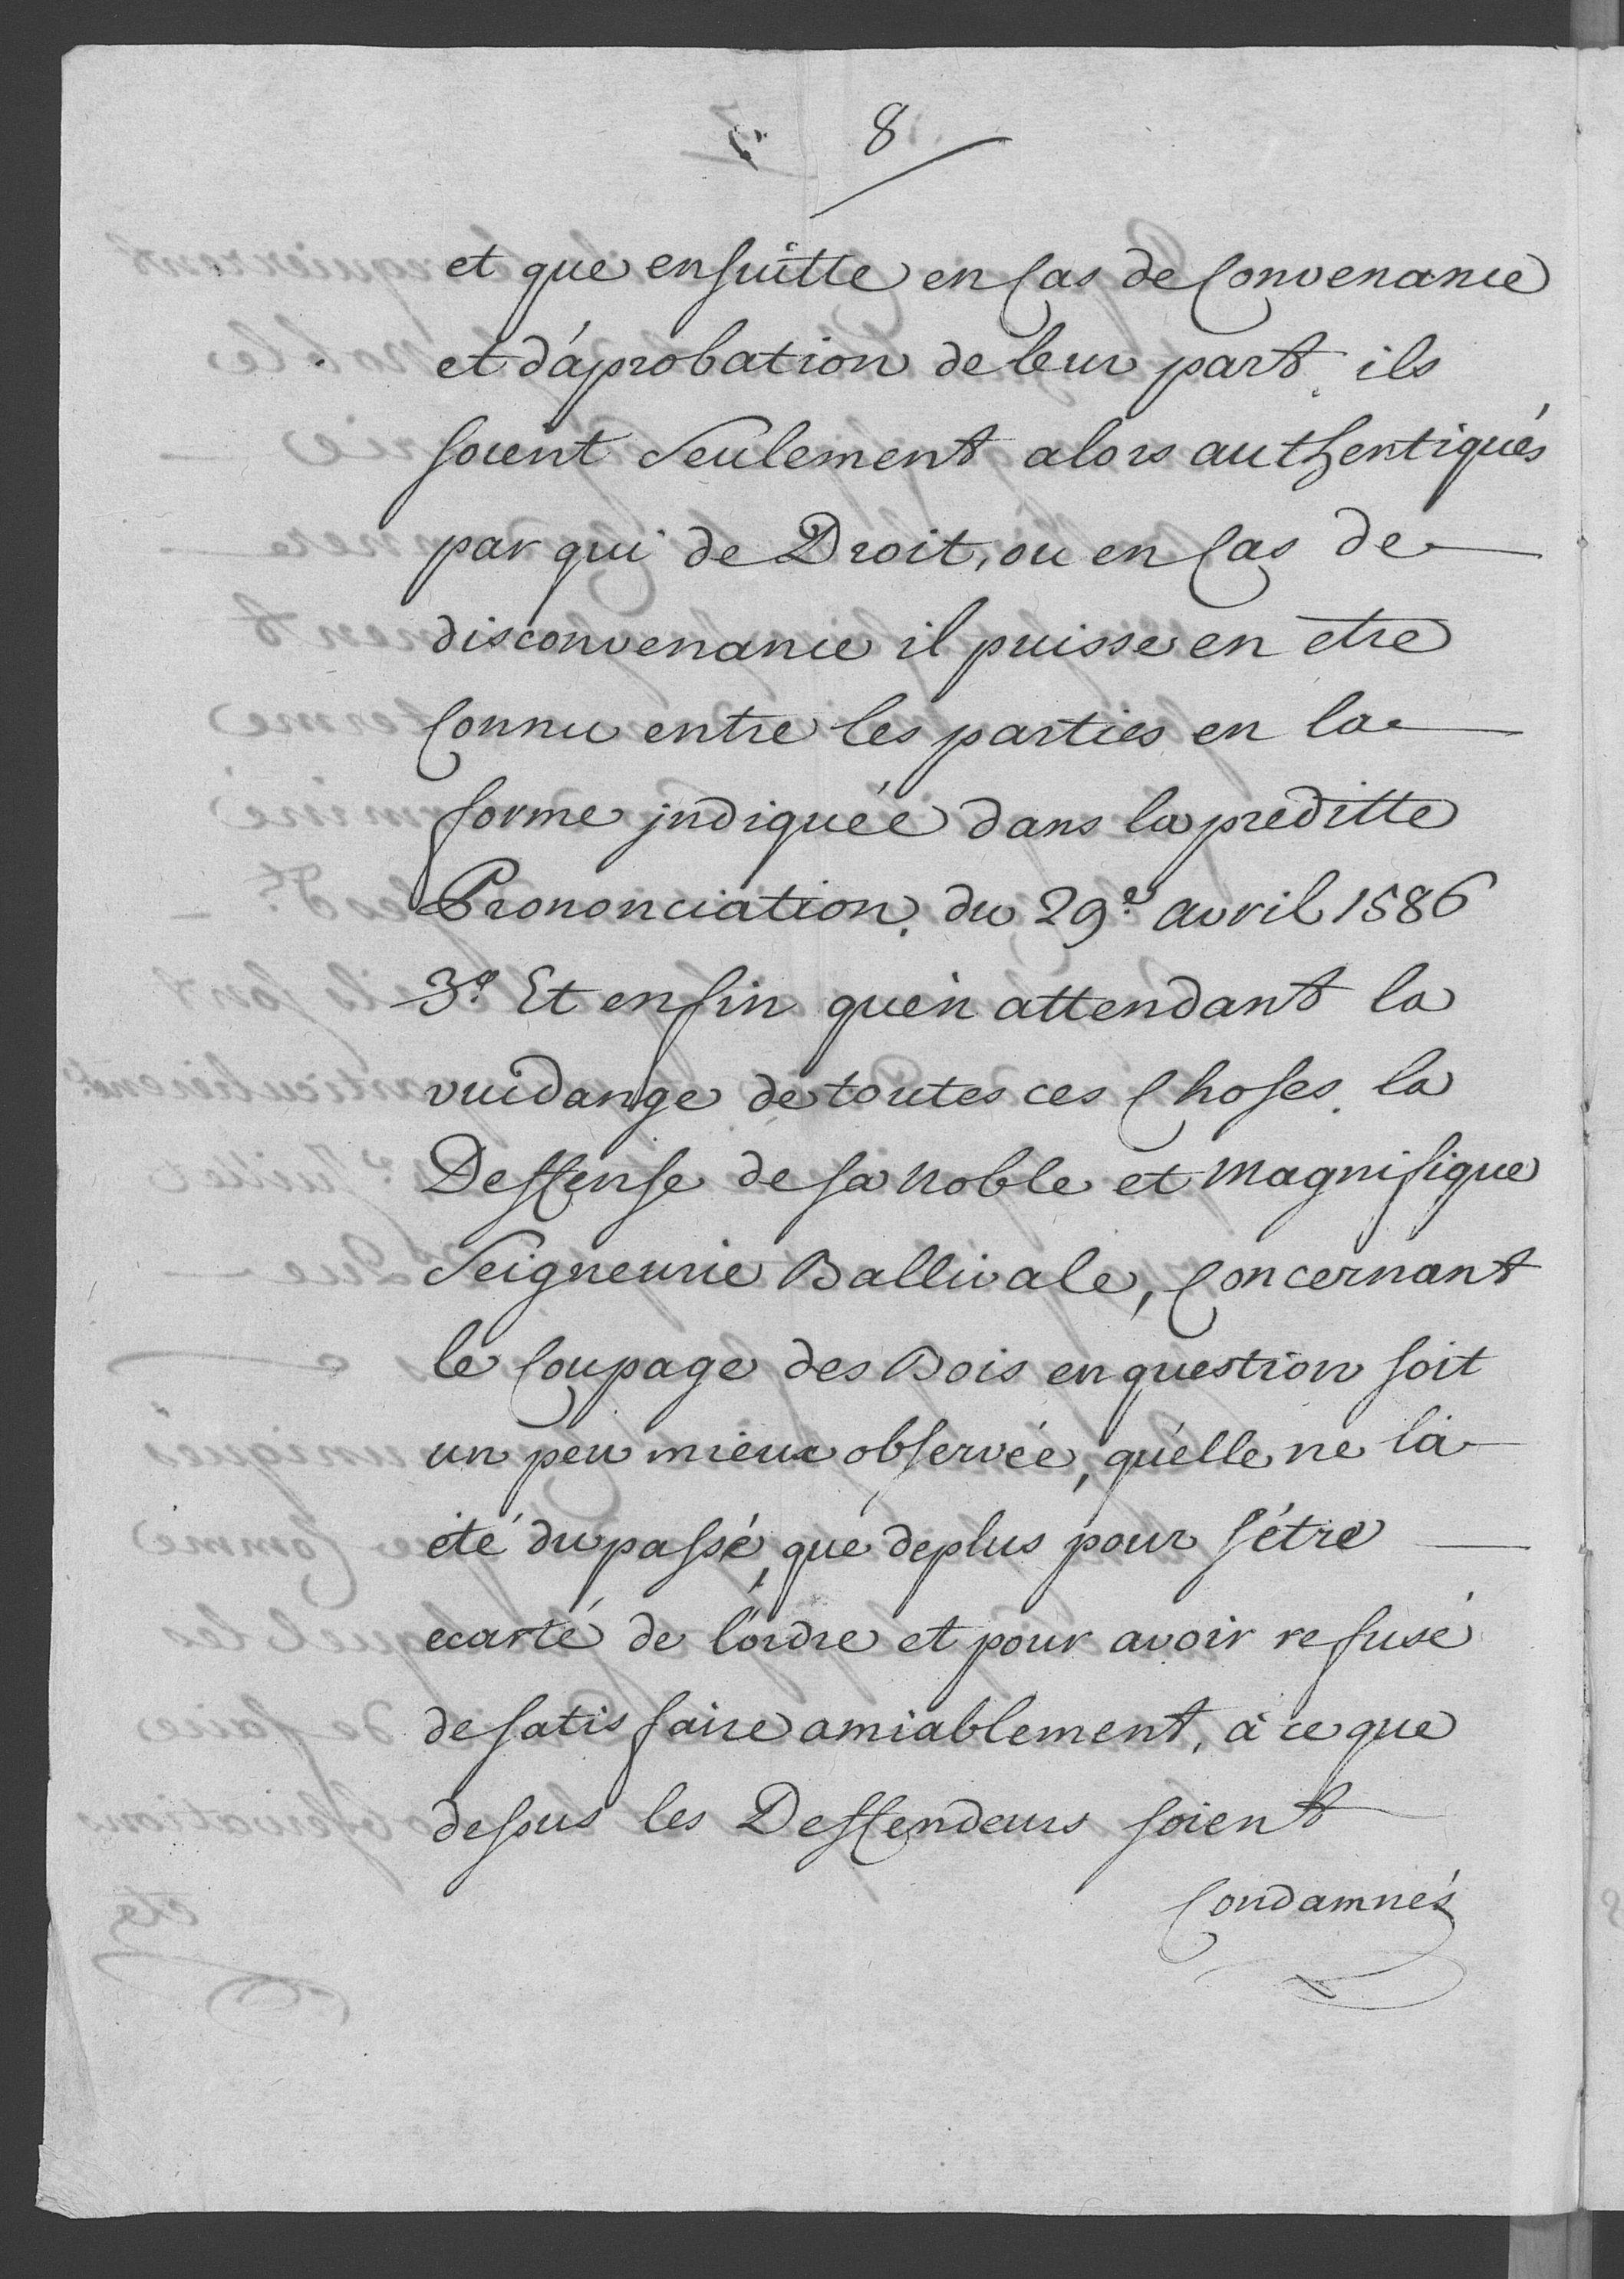 8
et que ensuitte en Cas de Convenance
et d'áprobation de leur part, ils
soient seulement alors authentiqués
par qui de Droit, ou en Cas de
disconvenance il puisse en etre
Connu entre les parties en la
forme jndiquée dans la preditte
Prononciation, du 29e avril 1586
3e Et enfin qu'en attendant la
vuidange de toutes ces Choses, la
Deffense de sa Noble et Magnifique
Seigneurie Ballivale, Concernant
le Coupage des Bois en question soit
un peu mieux observée, qu'elle ne l'a
été du passé, que de plus pour s'étre
ecarté de l'ordre et pour avoir refusé
de satisfaire amiablement, à ce que
desus les Deffendeurs soient
Condamnés